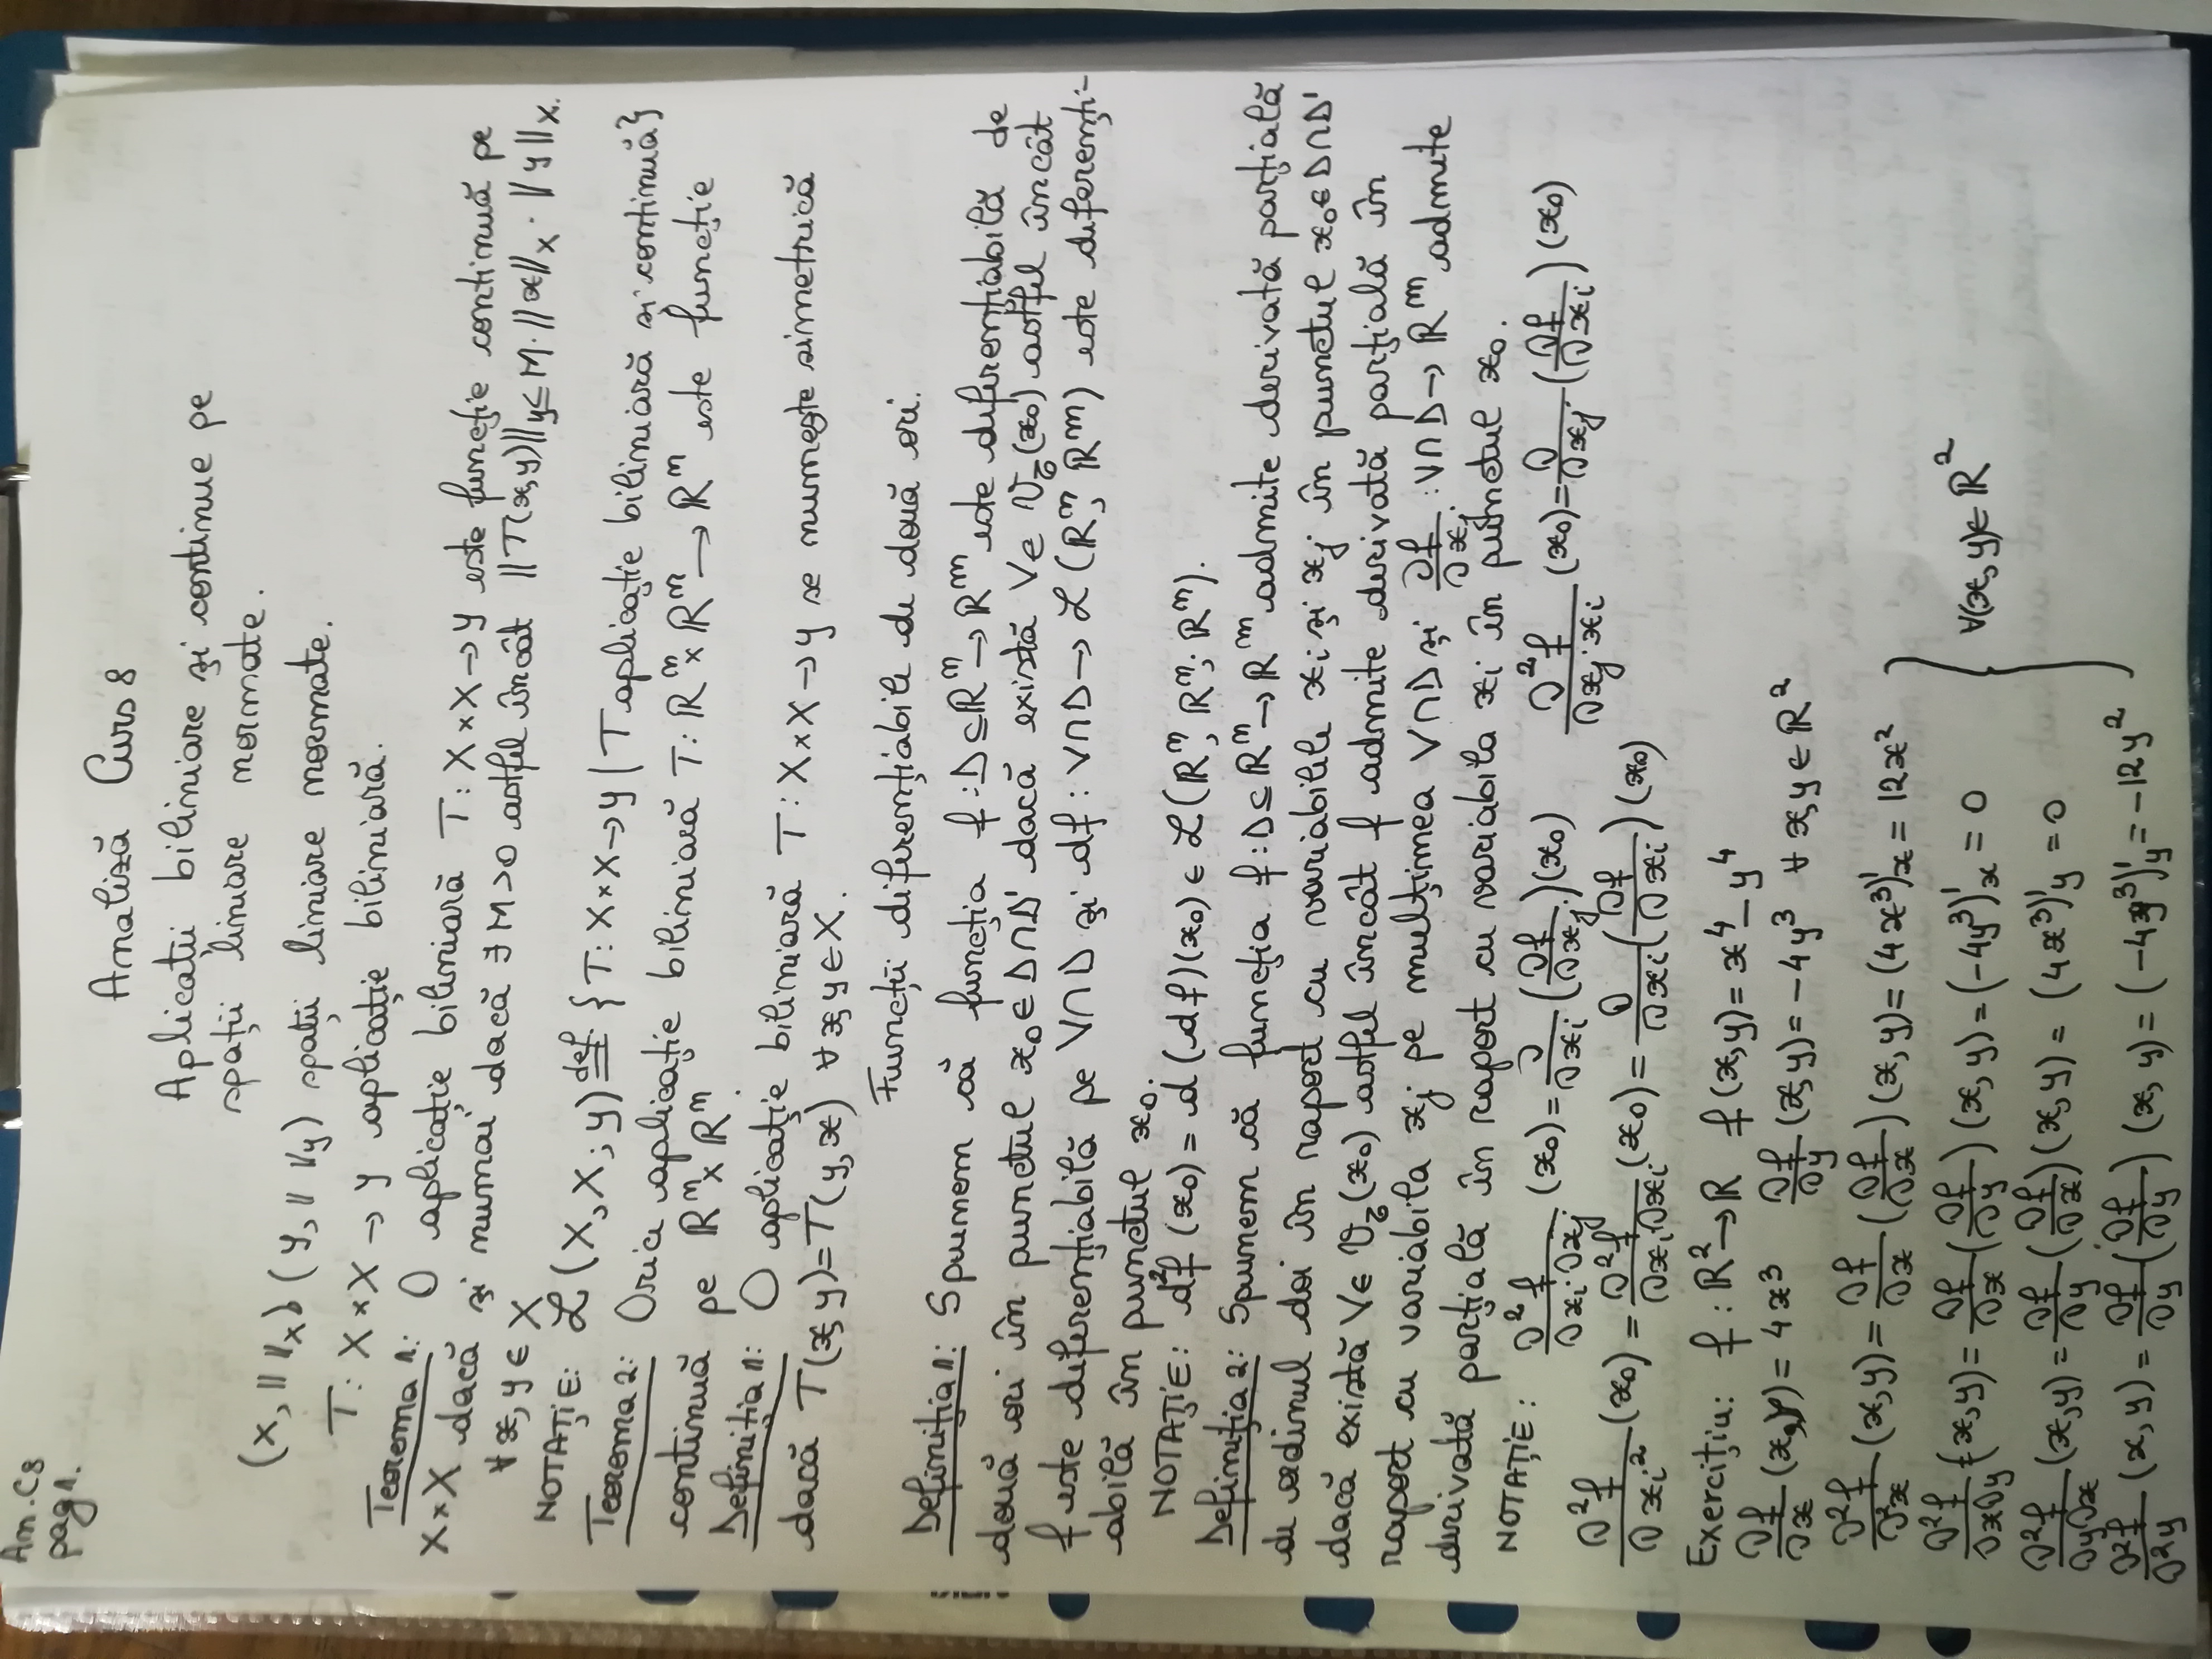 An. C8
pag 1.
Analiză Curs 8
Aplicatii biliniare și continue pe
spații liniare normate.
(X, || ||x), (y, || ||y) spatii liniare normate.
T: X×X → y aplicație biliniară.
Teorema 1: O aplicație biliniară T: X×X → y este funcție continuă pe
X×X dacă și numai dacă ∃ M>0 astfel încât ||T(x,y)||y ≤ M·||x||x·||y||x.
∀ x,y ∈ X
NOTAȚIE: ℒ(X,X;y) def= {T: X×X→y | T aplicație biliniară și continuă}
Teorema 2: Orice aplicație biliniară T: ℝᵐ×ℝᵐ → ℝᵐ este funcție
continuă pe ℝᵐ×ℝᵐ.
Definiția 1: O aplicație biliniară T: X×X→y se numește simetrică
dacă T(x,y)=T(y,x) ∀ x,y ∈ X.
Funcții diferențiabile de două ori.
Definiția 1: Spunem că funcția f:D⊆ℝᵐ→ℝᵐ este diferențiabilă de
două ori în punctul x₀∈D∩D' dacă există V∈𝒱_ζ(x₀) astfel încât
f este diferențiabilă pe V∩D și df: V∩D→ℒ(ℝᵐ;ℝᵐ) este diferenți-
abilă în punctul x₀.
NOTAȚIE: d²f(x₀)=d(df)(x₀)∈ℒ(ℝᵐ,ℝᵐ;ℝᵐ).
Definiția 2: Spunem că funcția f:D⊆ℝᵐ→ℝᵐ admite derivată parțială
de ordinul doi în raport cu variabilele xi și xj în punctul x₀∈D∩D'
dacă există V∈𝒱_ζ(x₀) astfel încât f admite derivată parțială în
raport cu variabila xj pe mulțimea V∩D și ∂f/∂xj : V∩D→ℝᵐ admite
derivată parțială în raport cu variabila xi în punctul x₀.
NOTAȚIE: ∂²f/∂xi∂xj (x₀)=∂/∂xi(∂f/∂xj)(x₀) ∂²f/∂xj·xi (x₀)=∂/∂xj(∂f/∂xi)(x₀)
∂²f/∂xi² (x₀)=∂²f/∂xi∂xi (x₀)=∂/∂xi(∂f/∂xi)(x₀)
Exercițiu: f:ℝ²→ℝ f(x,y)=x⁴-y⁴
∂f/∂x (x,y)=4x³ ∂f/∂y (x,y)=-4y³ ∀ x,y∈ℝ²
∂²f/∂²x (x,y)=∂f/∂x(∂f/∂x)(x,y)=(4x³)'x=12x²
∂²f/∂x∂y (x,y)=∂f/∂x(∂f/∂y)(x,y)=(-4y³)'x=0
∂²f/∂y∂x (x,y)=∂f/∂y(∂f/∂x)(x,y)=(4x³)'y=0
∂²f/∂²y (x,y)=∂f/∂y(∂f/∂y)(x,y)=(-4y³)'y=-12y²
} ∀(x,y)∈ℝ²